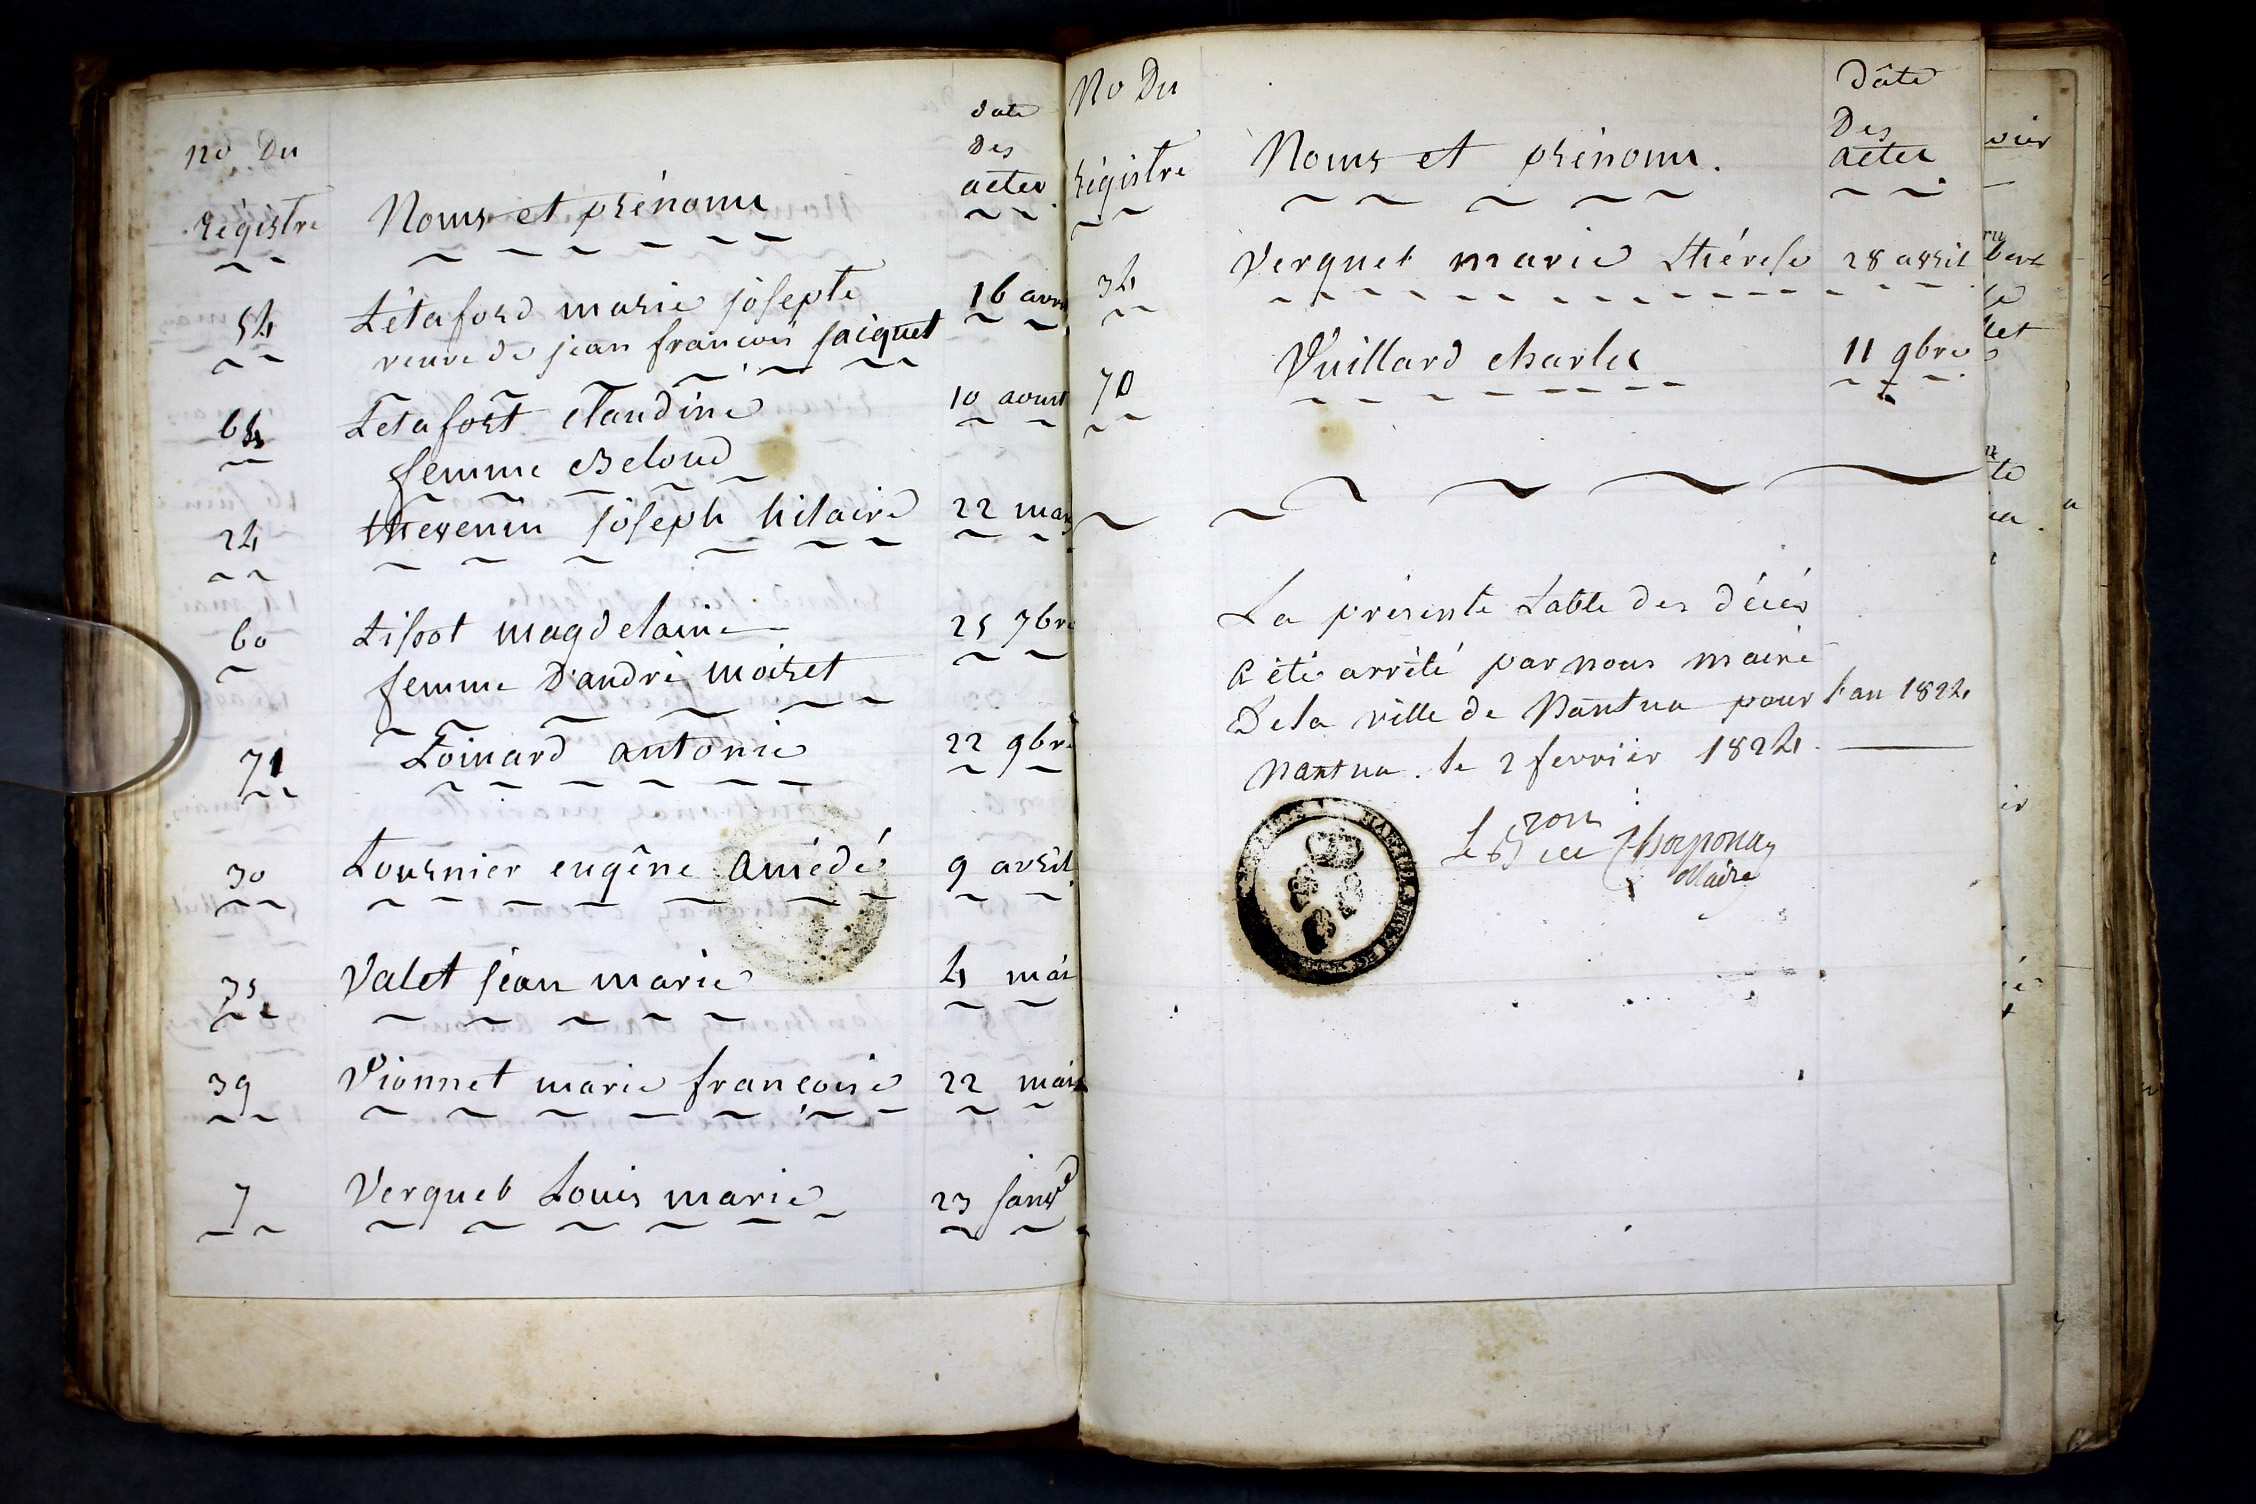 no Du
régistre
Noms et prénoms
date
Des
actes
54 Létaford marie josepte 16 avr
veuve de jean françois jaiquet
64 Tetafort Claudine 10 aoust
femme Beloud
24 thevenin joseph hilaire 22 mar
60 Tissot magdelaine 25 7bre
femme D'andré moiret
71 Toinard antonie 22 9bre
30 Tournier eugêne amédé 9 avril
35 Valet jean marie 4 mai
39 Vionnet marie françoise 22 mai
7 Verquet Louis marie 23 janv
No Du
régistre
Noms et prénoms.
Dâte
Des
actes
34 Verquet marie thérese 28 avril
70 Vuillard charles 11 9bre
La présente table des décés
a été arrêté par nous maire
De la ville de Nantua pour l'an 1824
Nantua. le 2 fevrier 1824.
Le Bon
Maire